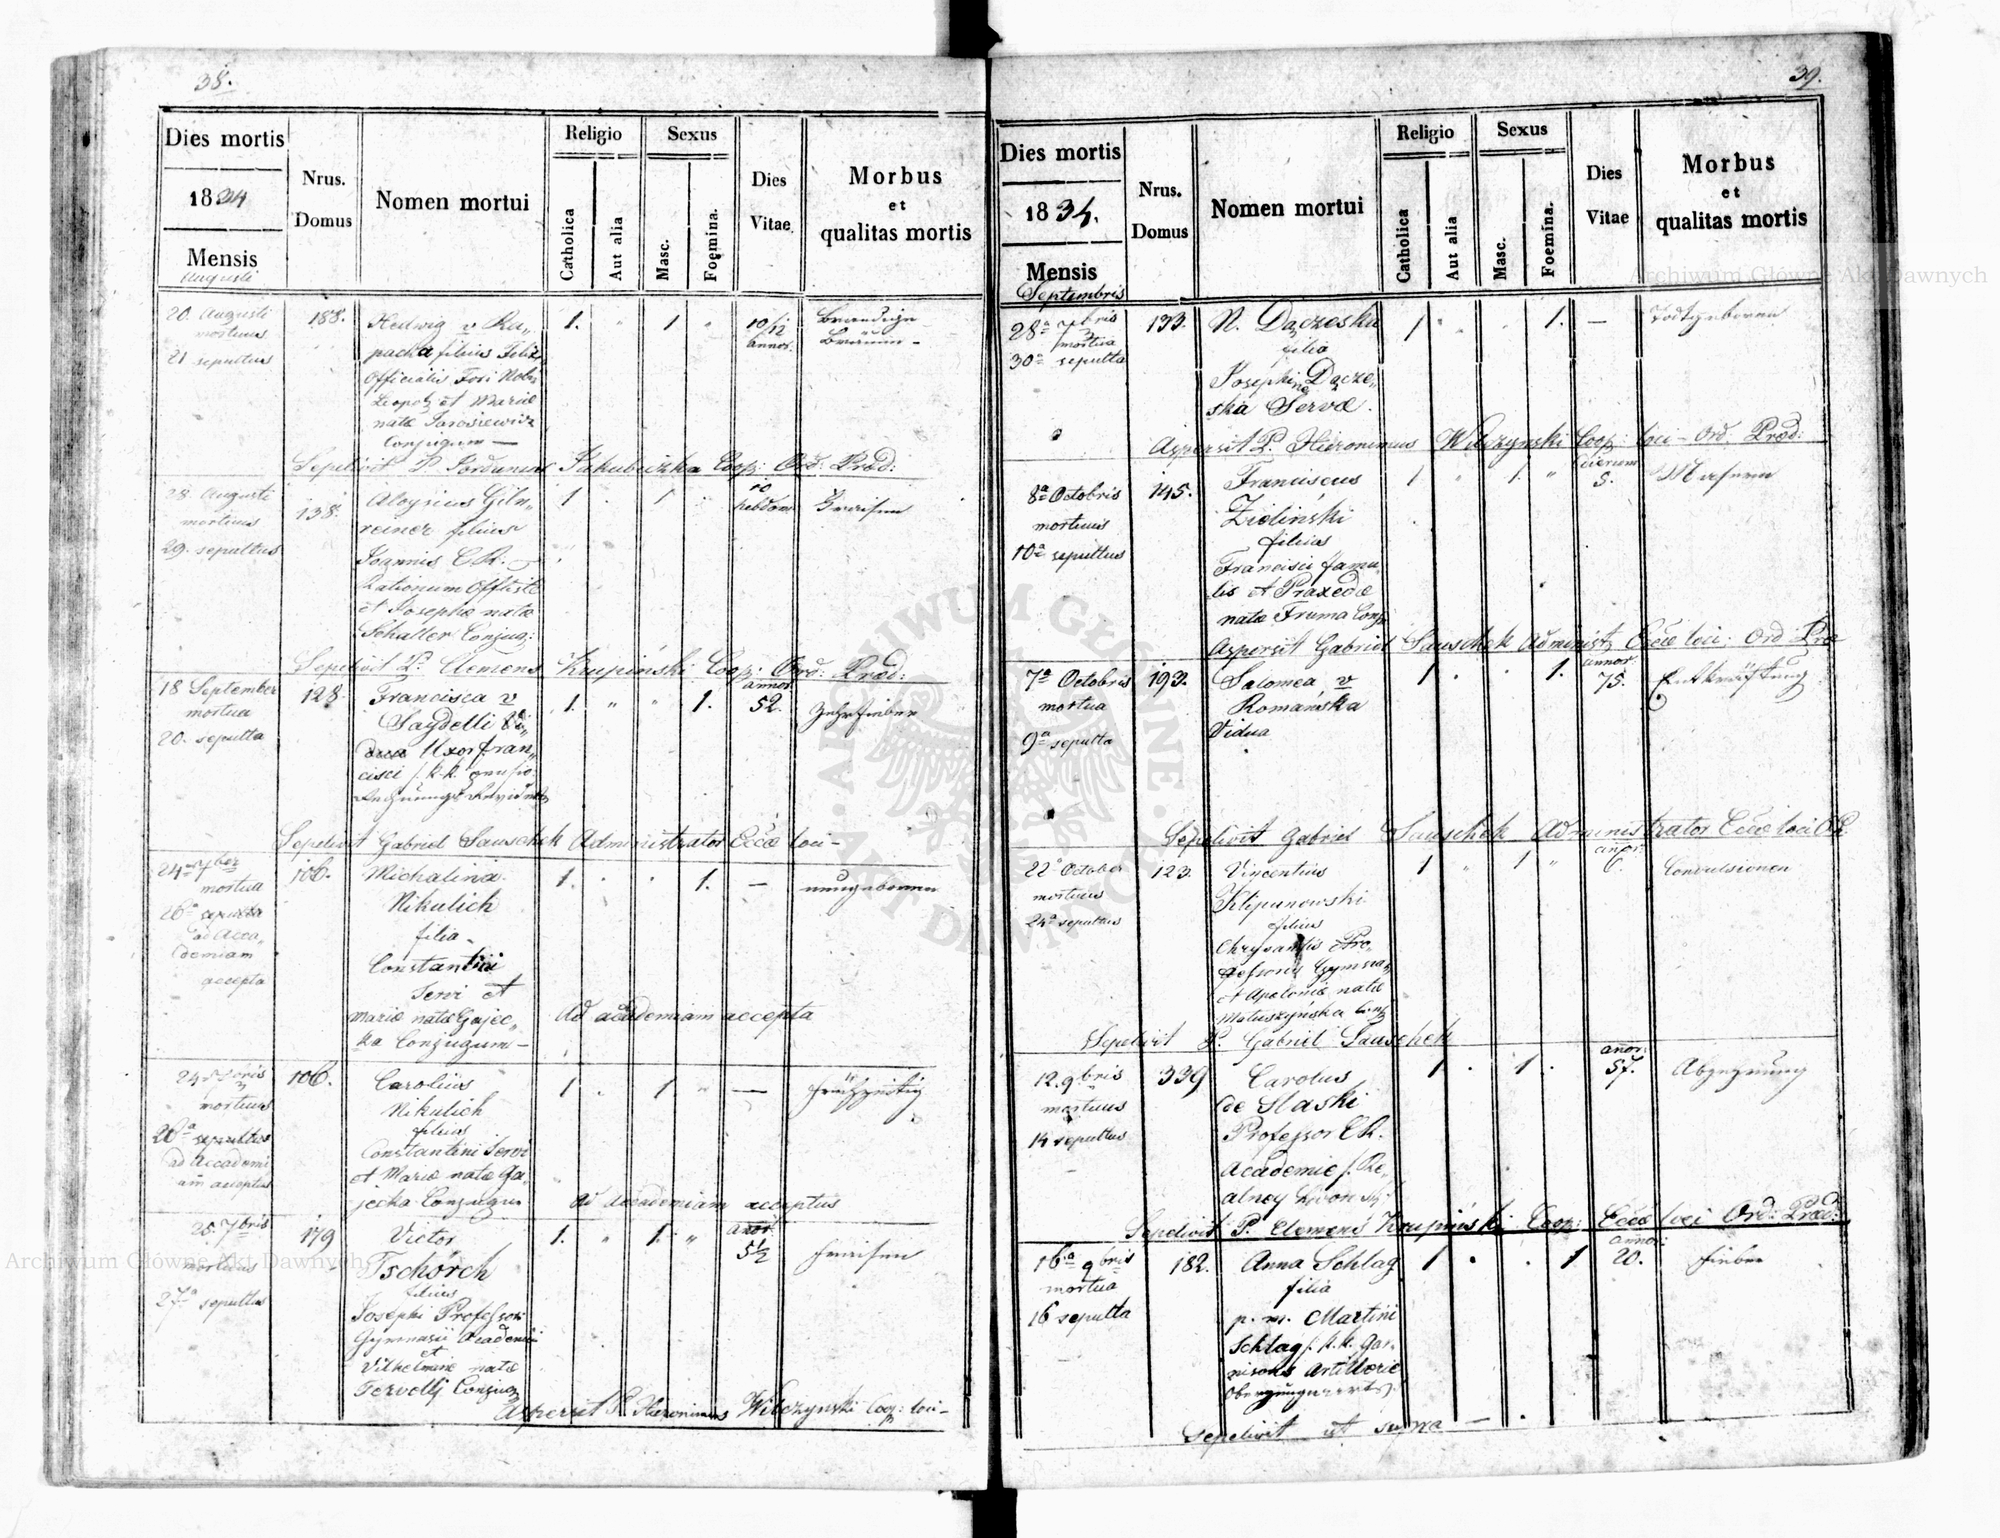 38.
Dies mortis
1834
Mensis
Augusti
Nrus.
Domus
Nomen mortui
Religio
Catholica
Aut alia
Sexus
Masc.
Foemina.
Dies
Vitae
Morbus
et
qualitas mortis
20 Augusti
mortuus
21 sepultus
188.
Hedwig v Ru„
packa filius Felix
Officialis Fori Nob:
Leopol: et Mariæ
natæ Jarosiewicz
Conjugum —
1. " 1 "
10/12
annor.
Sepelivit P. Jordanus Jakubiczka Coop: Ord: Præd:
28 Augusti
mortuus
29. sepultus
138.
Aloysius Giln„
reiner filius
Joannis C. R.
Rationum Offists
et Josephæ natæ
Schaller Conjug:
1 . 1 .
10
hebdom
Fraisen
Sepelivit P. Clemens Krupiński Coop: Ord: Præd:
18 September
mortua
20. sepulta
128
Francisca v
Saydelli
Uxor Fran„
cisci k. k. pensio:
Rechnungs Revident
1. " " 1.
annor.
52.
Zehrfieber
Sepelivit Gabriel Sauschek Administrator Eccæ loci —
24 7ber
mortua
26a sepulta
ad Acca„
demiam
accepta
106.
Michalina
Nikulich
filia
Constantini
Servi et
Mariæ natæ Gajec„
ka Conjugum —
1. . . 1. —
neugeboren
Ad academiam accepta
24 7bris
mortuus
26a sepultus
ad Accademi
am acceptus
106.
Carolus
Nikulich
filius
Constantini Servi
et Mariæ natæ Ga„
jecka Conjugum
1 . 1 " —
frühzeitig
Ad academiam acceptus
25. 7bris
mortuus
27a sepultus
179
Victor
Tschörch
filius
Josephi Professor
Gymnasii Academici
et
Vilhelminæ natæ
Fervelli Conjug
1. " 1. "
annor.
5 1/2
Fraisen
Aspersit P. Hieronimus Wilczynski Coop: loci —
39.
Dies mortis
1834.
Mensis
Septembris
Nrus.
Domus
Nomen mortui
Religio
Catholica
Aut alia
Sexus
Masc.
Foemina.
Dies
Vitae
Morbus
et
qualitas mortis
28a 7bris
mortua
30a sepulta
133.
N. Daczeska
filia
Josephinæ Dacze„
ska Servæ.
1 . . 1. —
Todtgeboren
Aspersit P. Hieronimus Wilczynski Coop: loci — Ord. Præd:
8a Octobris
mortuus
10a sepultus
145.
Franciscus
Zieliński
filius
Francisci famu„
lis et Praxedæ
natæ Fruma Conj
1 " 1. "
dierum
5.
Masern
Aspersit Gabriel Sauschek Administ. Eccæ loci: Ord: Præ
7a Octobris
mortua
9a sepulta
193.
Salomea v
Romańska
Vidua
1 . . 1.
annor.
75.
Entkräftung
Sepelivit Gabriel Sauschek Administrator Eccæ loci O. P.
22a October
mortuus
24a sepultus
123.
Vincentius
Klipunowski
filius
Chrysantis Pro„
fessoris Gymna„
et Apoloniæ natæ
Matuszyńska Conj
1 " 1 "
annor.
6.
Convulsionen
Sepelivit P. Gabriel Sauschek
12. 9bris
mortuus
14 sepultus
339
Carolus
de Slaski
Professor C. R.
Academie
1 . 1 .
annor.
57.
Abzehrung
Sepelivit P. Clemens Krupiński Coop: Eccæ loci Ord: Præd:
16a 9bris
mortua
16 sepulta
182.
Anna Schlag
filia
p. m. Martini
Schlag k. k. Gar„
nisons Artillerie
1 . . 1
annor:
20.
Fieber
Sepelivit ut supra —
Archiwum Główne Akt Dawnych
Archiwum Główne Akt Dawnych
ARCHIWUM GŁÓWNE · AKT DAWNYCH ·